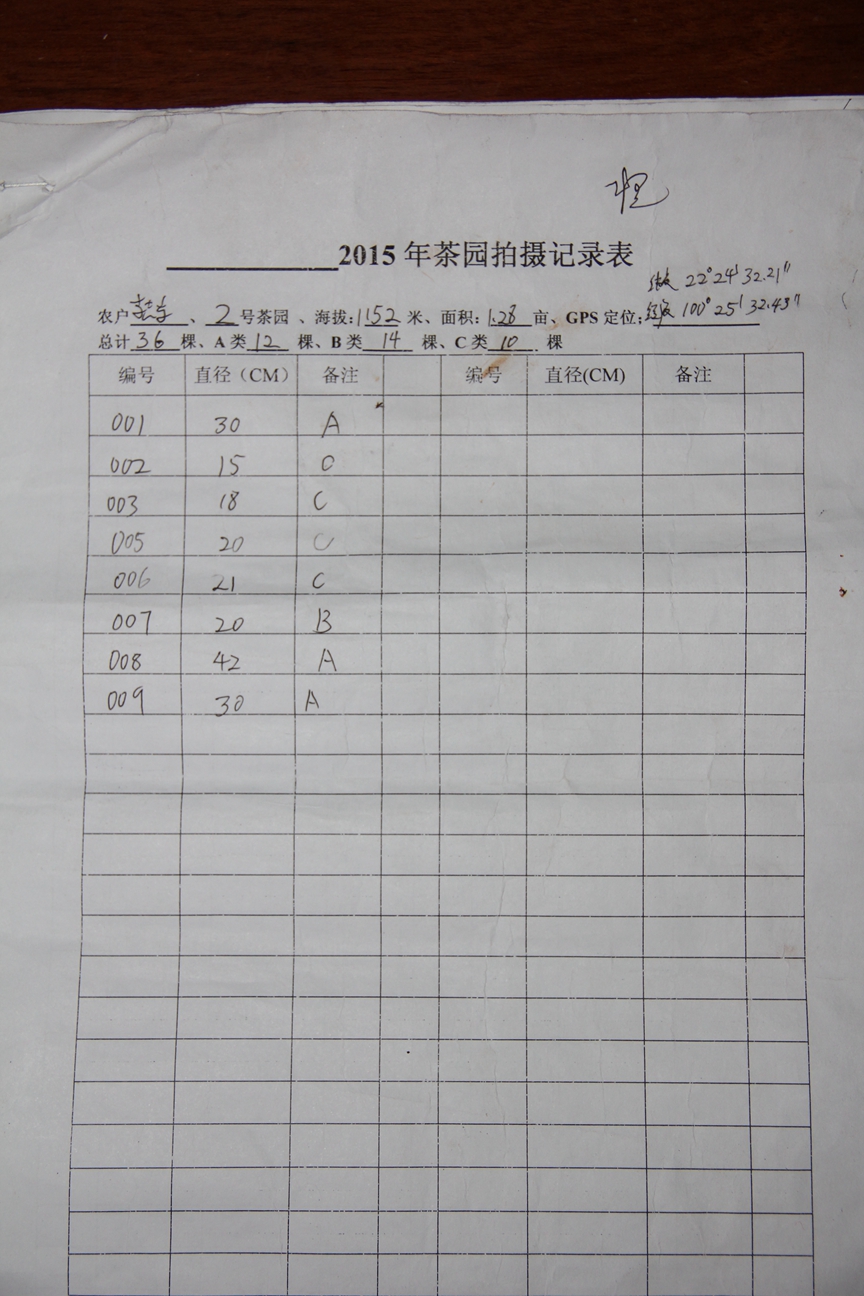 2015年茶园拍摄记录表
纬度 22°24′32.21″
农户 、2号茶园、海拔:1152米、面积:1.28亩、GPS定位; 经度 100°25′32.43″
总计36棵、A类12棵、B类14棵、C类10棵
编号 直径（CM） 备注 编号 直径(CM) 备注
001 30 A
002 15 C
003 18 C
005 20 C
006 21 C
007 20 B
008 42 A
009 30 A